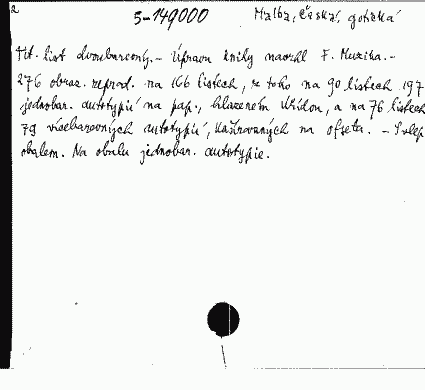 2
5-149000 Malba, Česká, gotická
Tit. list dvoubarevný. - Úpravu knihy navrhl F. Muzika. -
276 obraz. reprod. na 166 listech, z toho na 90 listech 197
jednobar. autotypií na pap., hlazeném křídou, a na 76 listech
79 vícebarevných autotypií, kašírovaných na ofsetu. - S slep.
obalem. Na obalu jednobar. autotypie.